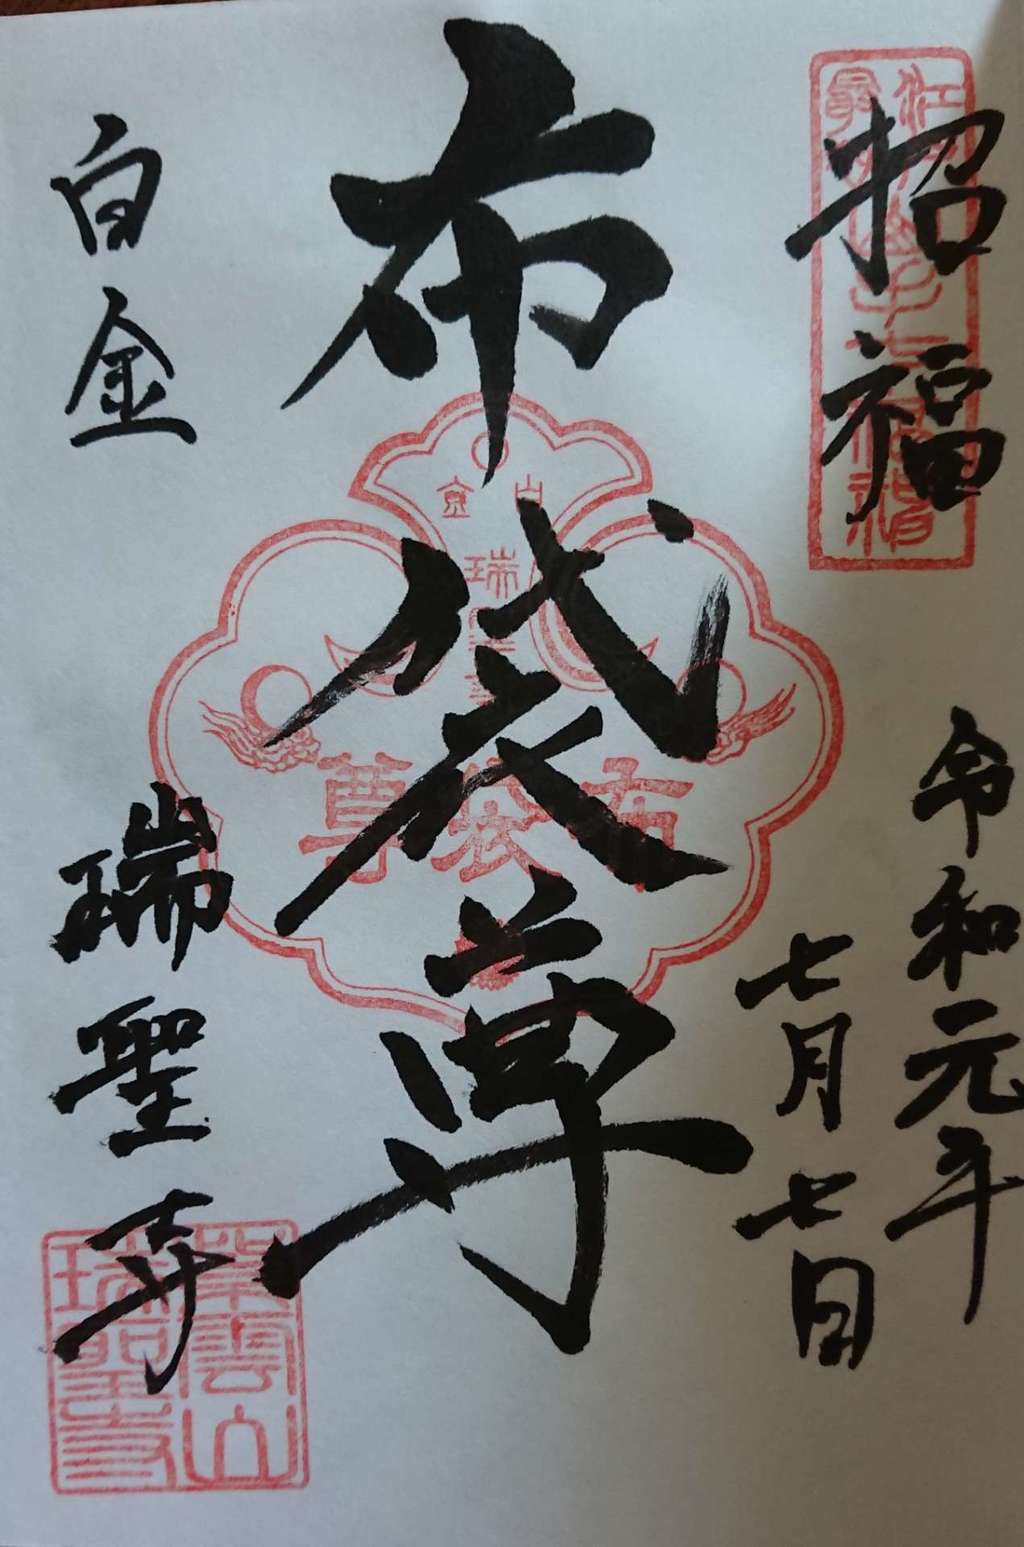 招福
令和元年
七月七日
布袋尊
白金
瑞聖寺
白金
瑞聖寺
布袋尊
紫雲山
瑞聖寺